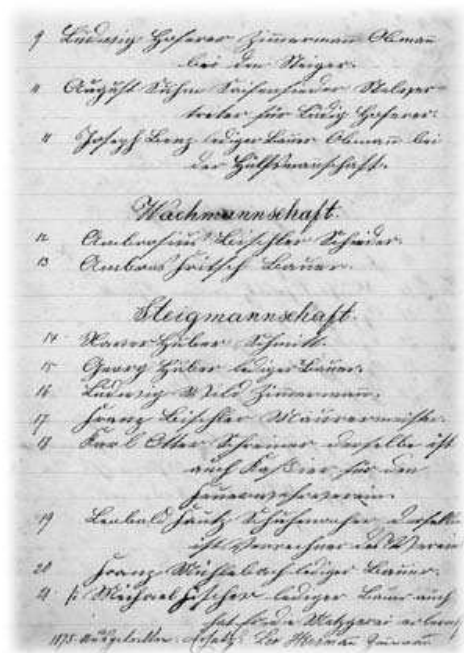 9 Ludwig Hoferer Zimmermann Obman
bei den Steiger.
" August Suhm Seifensieder Stelver-
treter für Ludwig Hoferer.
" Joseph Benz lediger Bauer Obman bei
der Hülfsmanschaft.
Wachmannschaft.
12 Ambrosius Bischler Schneider.
13 Ambros Fritsch Bauer.
Steigmannschaft.
14 Xaver Huber Schmitt.
15 Georg Huber lediger Bauer.
16 Ludwig Zimmermann.
17 Franz Bischler Maurermeister.
18 Karl Otter Schreiner derselbe ist
auch Kassier für den
Feuerwehrverein.
19 Leobald Schuhmacher derselbe
ist Verrechner des Verein
20 Franz Mühlebach lediger Bauer.
21 Michael Fischer lediger Bauer auch
hat die Metzgerei erlernt
1875 Ausgetretten ersetzt: Leo